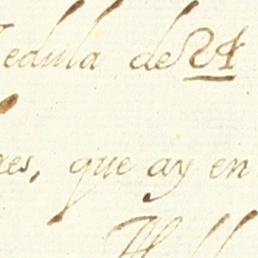 edula de 24
es, que ay en